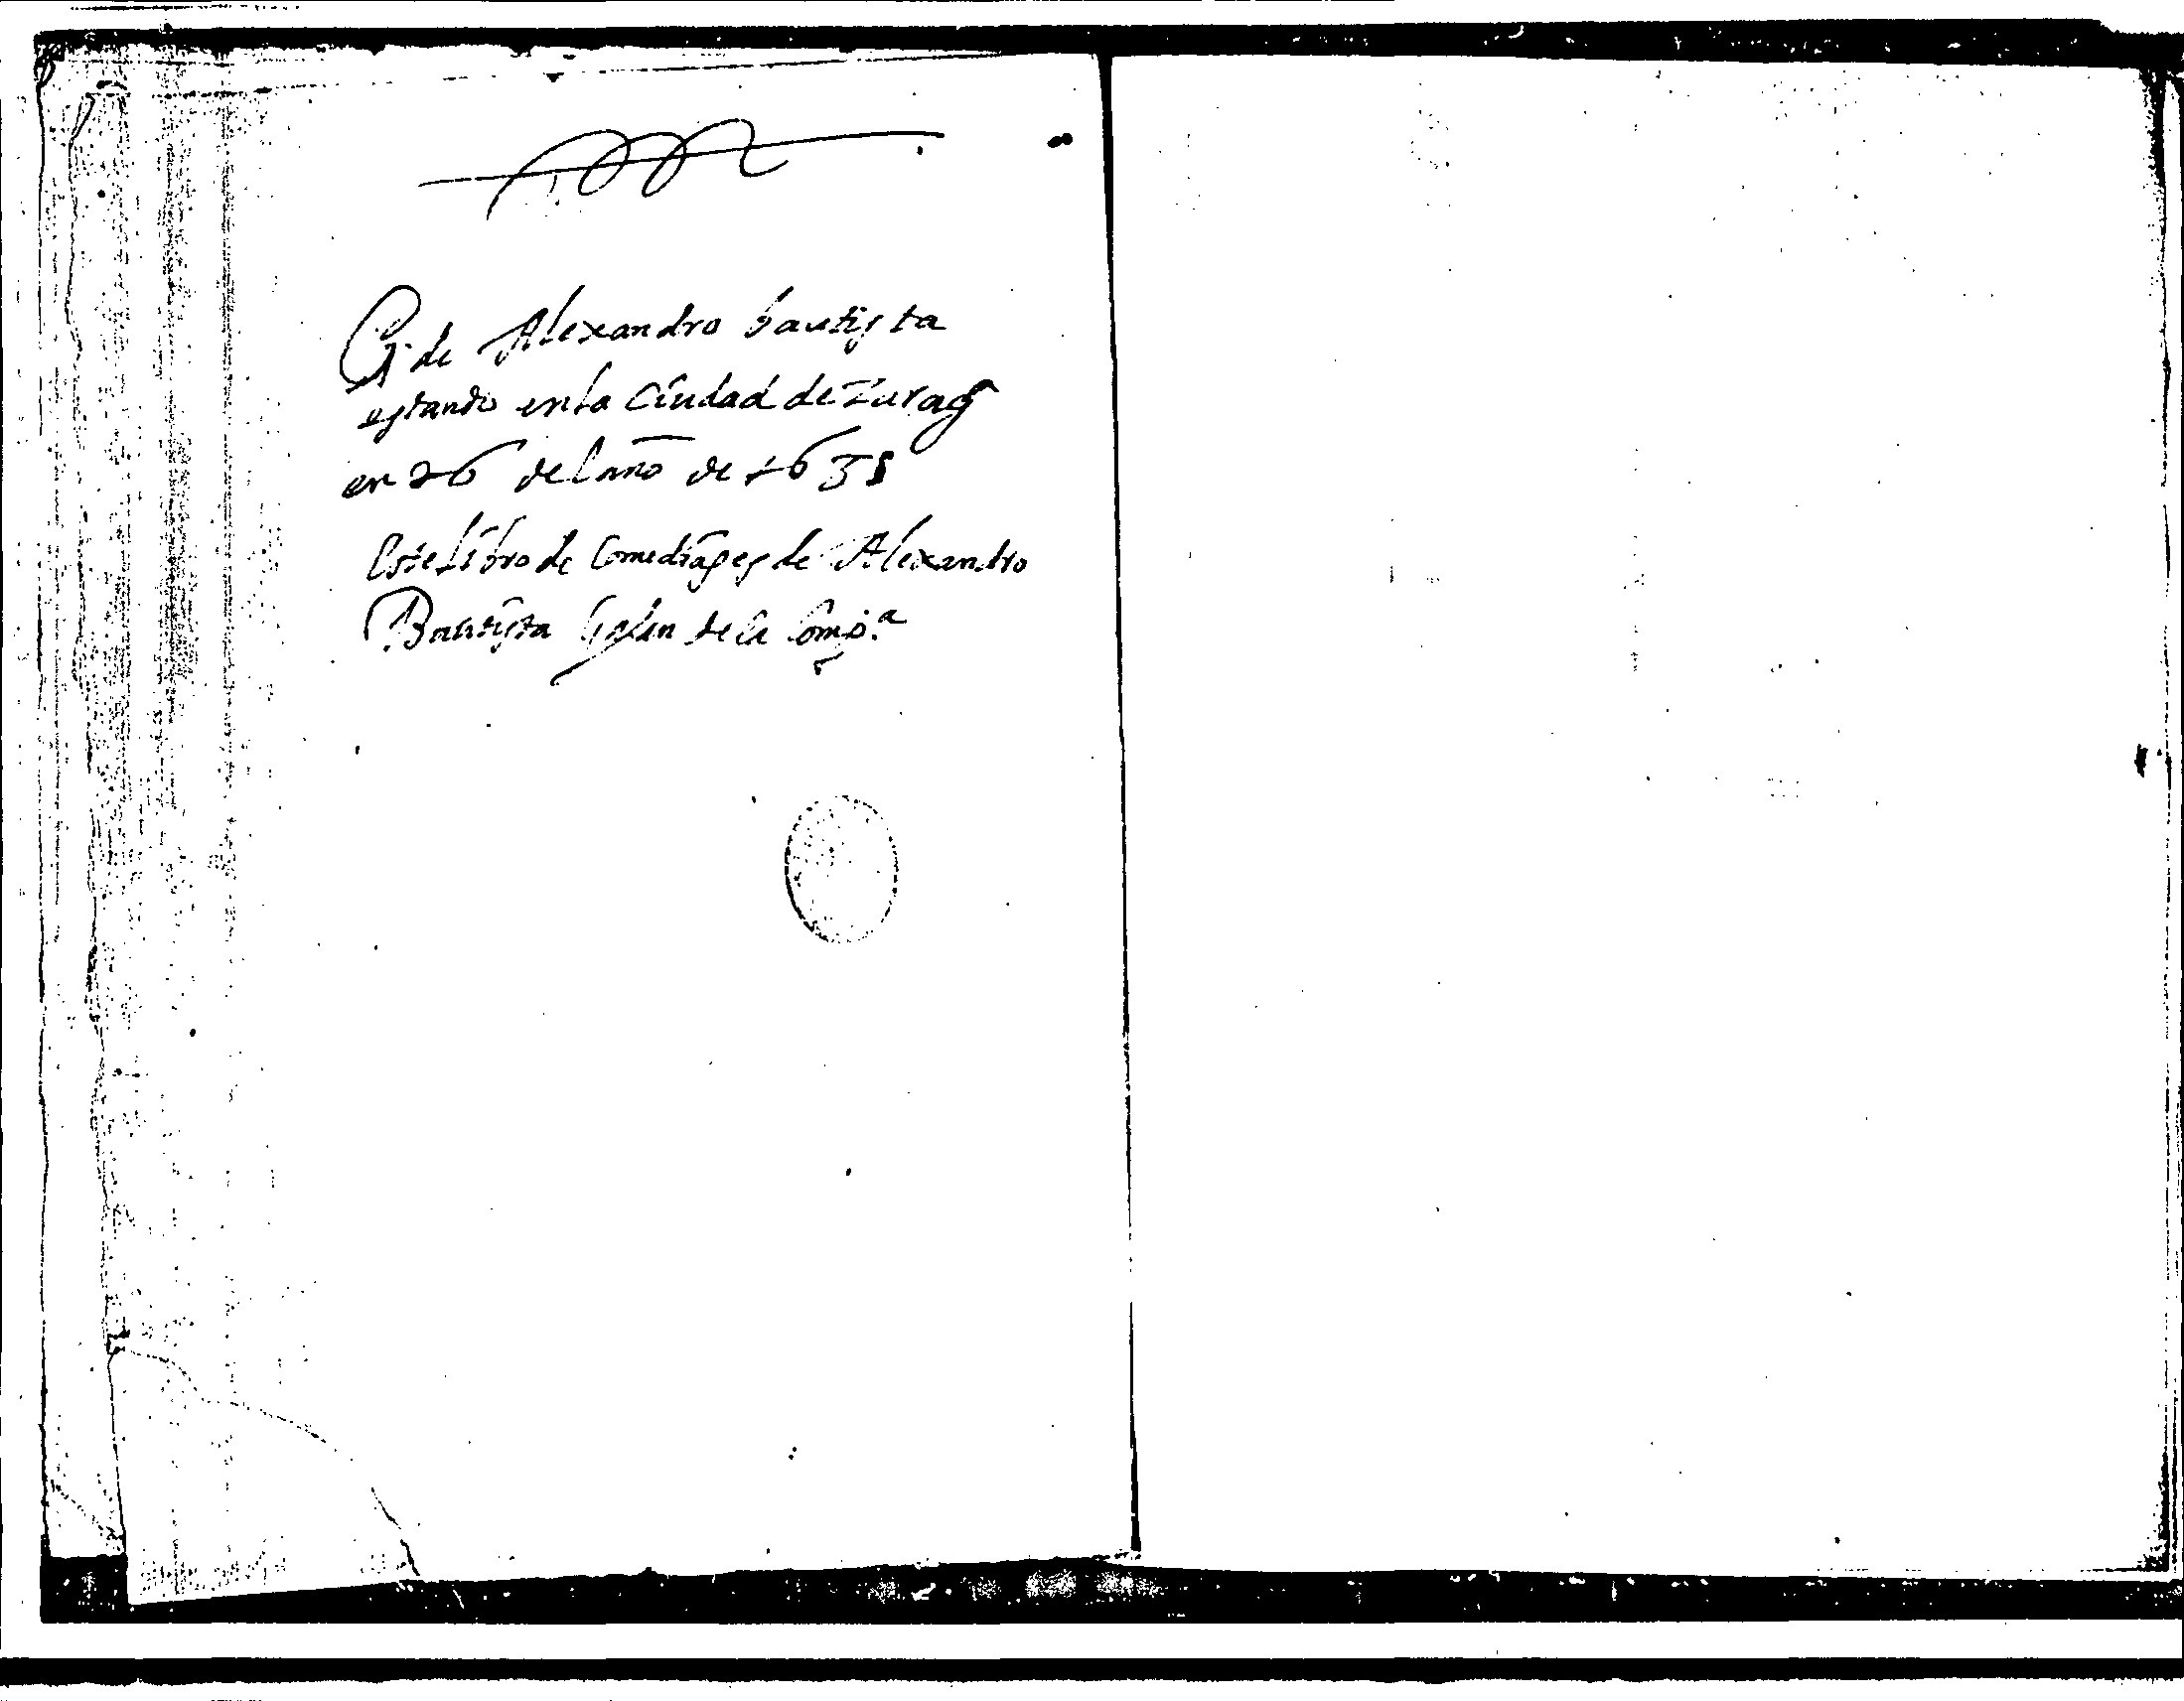 de Alexandro bautista
estando en la Ciudad de Zarag
en 26 del año de 163
Este Libro de Comedias es de Alexandro
Bautista Galan de la Comp.ª